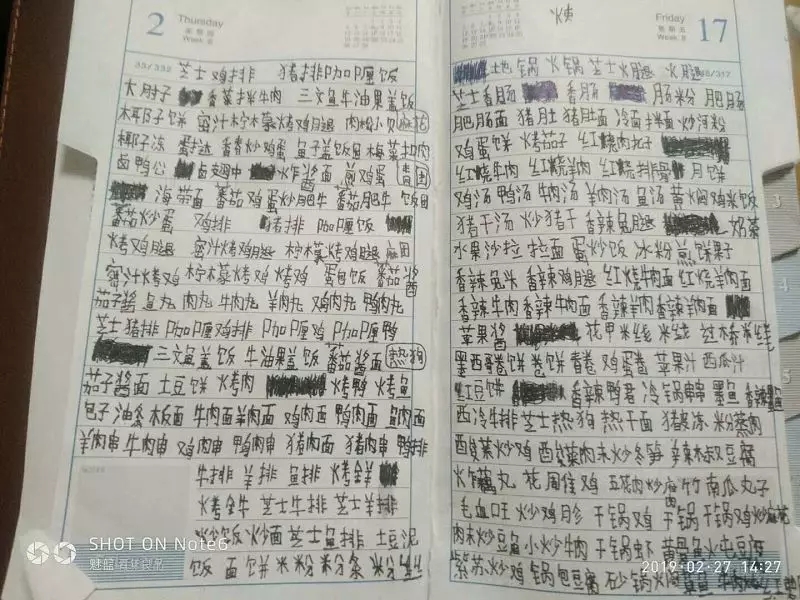 2 Thursday
星期四
Week 6
35/332 芝士鸡排 猪排咖喱饭
大肘子 香菜拌牛肉 三文鱼牛油果盖饭
椰子饼 蜜汁柠檬烤鸡腿 肉粉小贝 麻花
椰子冻 蛋挞 香香炒鸡蛋 鱼子盖饭 梅菜扣肉
卤鸭 卤翅中 炸酱面 煎鸡蛋 青团
海带面 番茄鸡蛋炒肥牛 肥牛 饭团
番茄炒蛋 鸡排 猪排 咖喱饭
烤鸡腿 蜜汁烤鸡腿 柠檬烤鸡腿 麻团
蜜汁烤鸡 柠檬烤鸡 烤鸡 蛋包饭 番茄酱
茄子酱 鱼丸 肉丸 牛肉丸 羊肉丸 鸡肉丸 鸭肉丸
芝士猪排 咖喱鸡排 咖喱鸡 咖喱鱼 咖喱鸭
三文鱼盖饭 牛油果盖饭 番茄酱面 热狗
茄子酱面 土豆饼 烤肉 烤鸭 烤鱼
包子 油条 板面 牛肉面 羊肉面 鸡肉面 鸭肉面 鱼肉面
羊肉串 牛肉串 鸡肉串 鸭肉串 猪肉面 猪肉串 鸭排
牛排 羊排 鱼排 烤全羊
烤全牛 芝士牛排 芝士羊排
炒饭 炒面 芝士鱼排 土豆泥
饭 面 饼 米粉 条
SHOT ON Note6
魅蓝
Friday
星期五
Week 8
17
48/317
土地锅 火锅 芝士火腿 火腿
芝士香肠 香肠 肠粉 肥肠
肥肠面 猪肚 猪肚面 冷面 拌面 炒河粉
鸡蛋饼 烤茄子 红烧肉丸子
红烧牛肉 红烧羊肉 红烧排骨 月饼
鸡汤 鸭汤 牛肉汤 羊肉汤 鱼汤 黄焖鸡米饭
猪干汤 炒猪干 香辣兔腿 奶茶
水果沙拉 拉面 蛋炒饭 冰粉 煎饼果子
香辣兔 香辣鸡腿 红烧牛肉面 红烧羊肉面
香辣牛肉 香辣牛肉面 香辣羊肉 香辣羊肉面
苹果酱 花甲米线 米线 过桥米线
墨西哥卷饼 卷饼 春卷 鸡蛋卷 苹果汁 西瓜汁
红豆饼 香辣鸭 冷锅串串 墨鱼 香辣
西冷牛排 芝士热狗 热干面 猪皮冻 粉蒸肉
酸菜炒鸡 酸菜肉末炒冬笋 辣椒豆腐
火锅藕丸 花雕鸡 五花肉炒 竹 南瓜丸子
毛血旺 炒鸡 干锅鸡 干锅 干锅鸡 炒麻花
肉末炒豆角 小炒牛肉 干锅虾 黄骨鱼火炖豆腐
紫苏炒鸡 锅包豆腐 石锅
2019-02-27 14:27